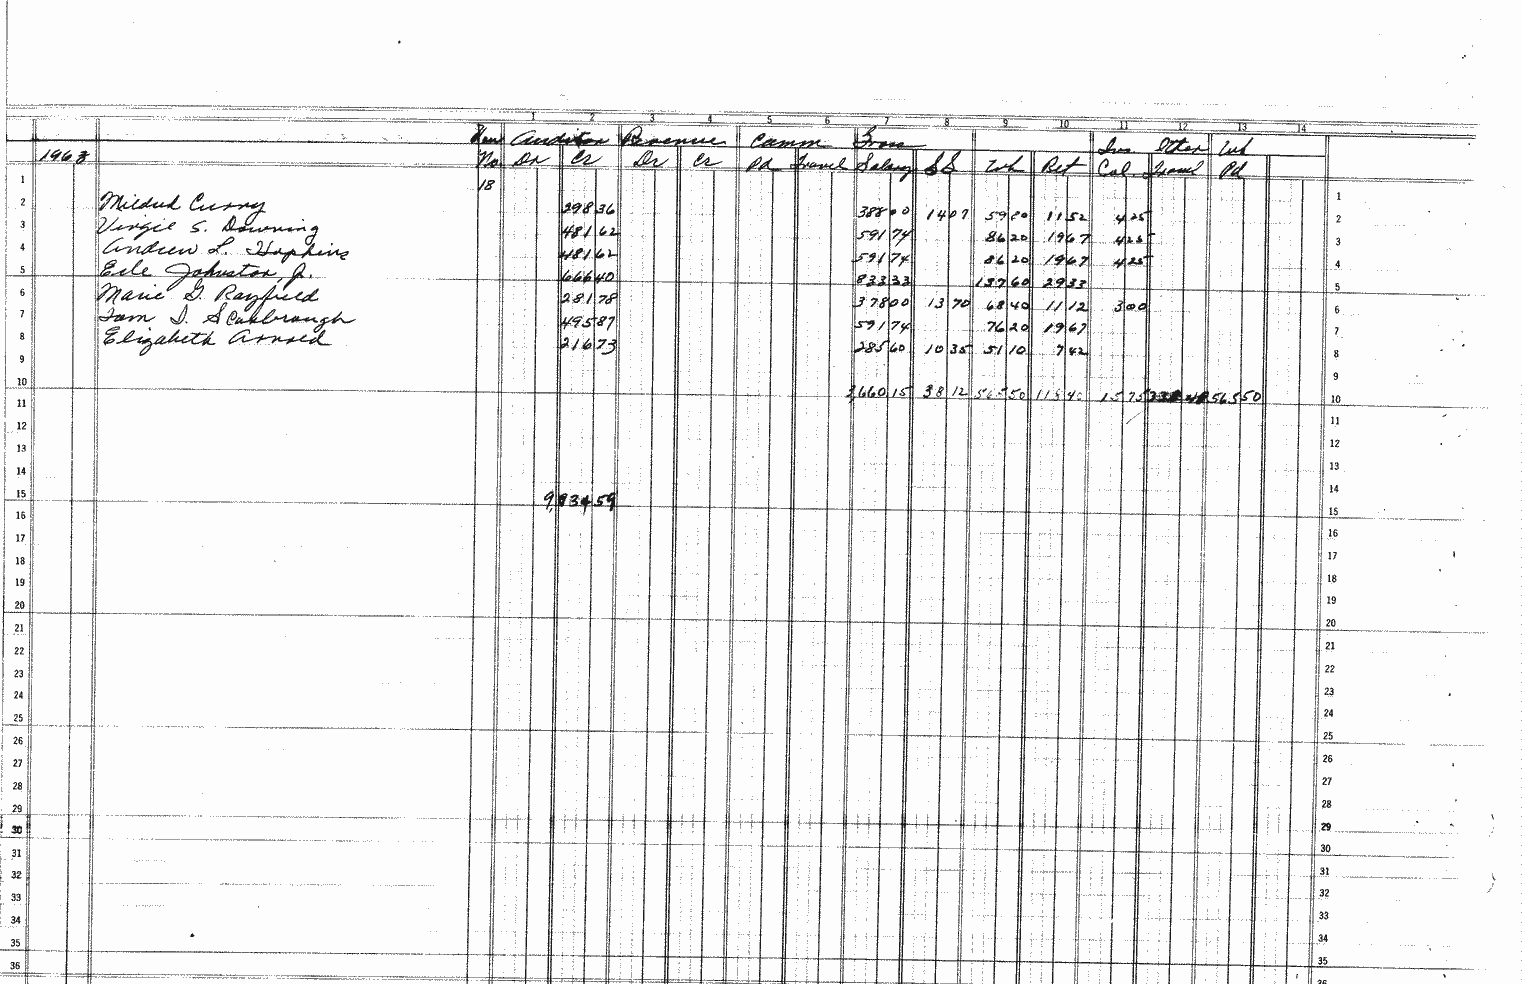 1 2 3 4 5 6 7 8 9 10 11 12 13 14
Auditor Revenue Comm Gross Ins Other Wh
1963 No Dr Cr Dr Cr Pd Travel Salary SS Wh Ret Col Travel Pd
1 18 1
2 Mildred Curry 298 36 388 00 14 07 59 80 11 52 4 25 2
3 Virgie S. Downing 481 62 591 74 86 20 19 67 4 25 3
4 Andrew L. Hopkins 481 62 591 74 86 20 19 67 4 25 4
5 Erle Johnston, Jr. 666 40 833 33 137 60 29 33 5
6 Marie G. Rayfield 281 78 378 00 13 70 68 40 11 12 3 00 6
7 Tom D. Scarbrough 495 87 591 74 76 20 19 67 7
8 Elizabeth Arnold 216 73 285 60 10 35 51 10 7 42 8
9 9
10 3,660 15 38 12 565 50 118 40 15 75 565 50 10
11 11
12 12
13 13
14 14
15 59 15
16 16
17 17
18 18
19 19
20 20
21 21
22 22
23 23
24 24
25 25
26 26
27 27
28 28
29 29
30 30
31 31
32 32
33 33
34 34
35 35
36 36